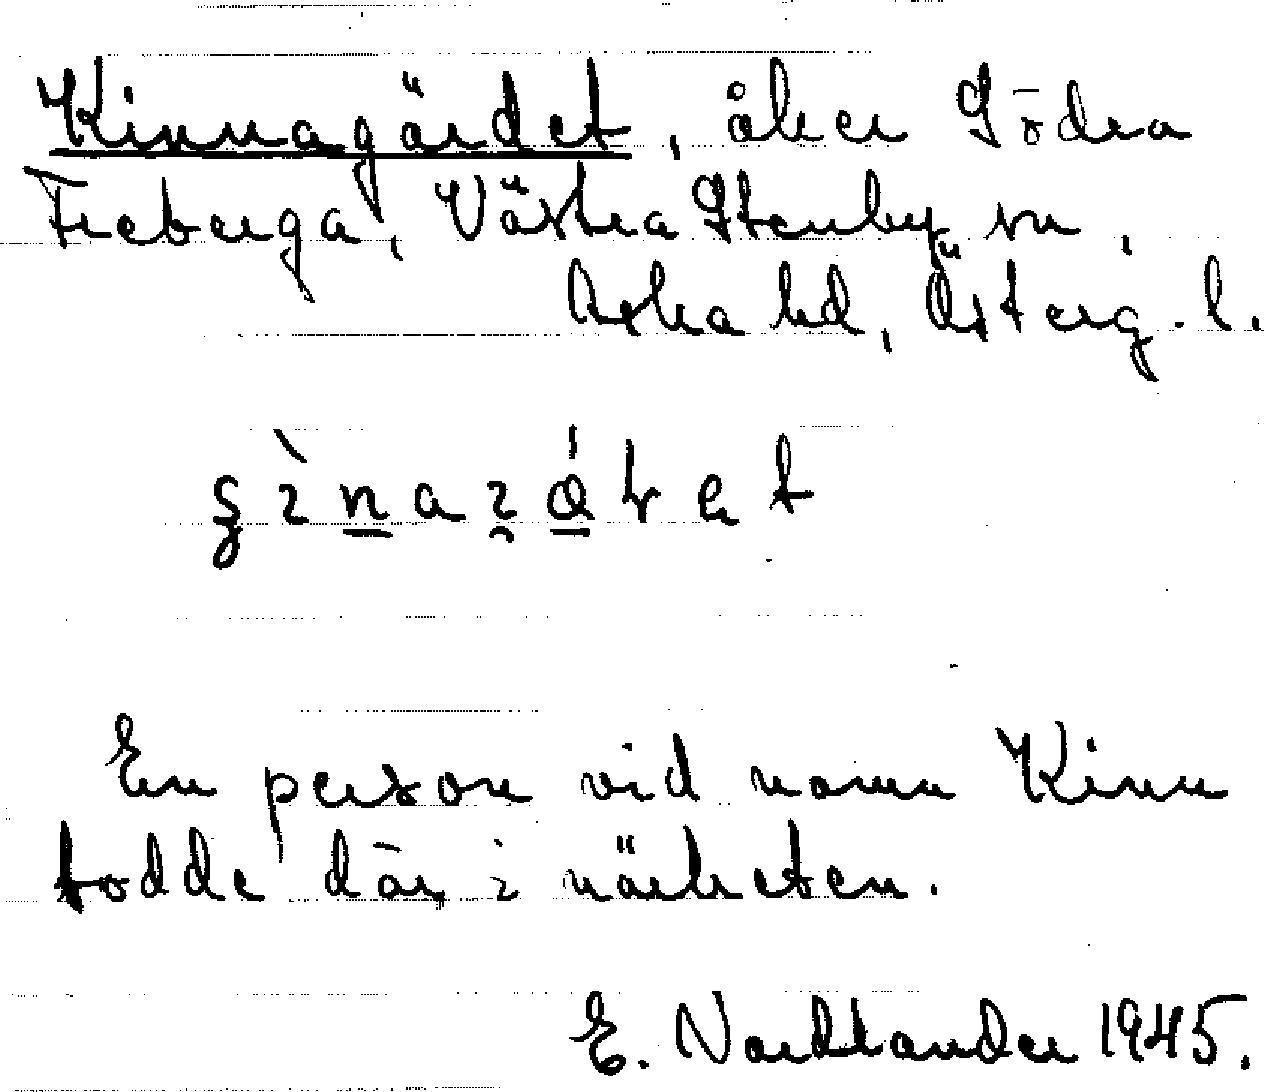 Kinnagärdet, åker Södra
Freberga, Västra Stenby sn,
Aska hd, Österg. l.
En person vid namn Kinn
bodde där i närheten.
E. Nordlander 1945.